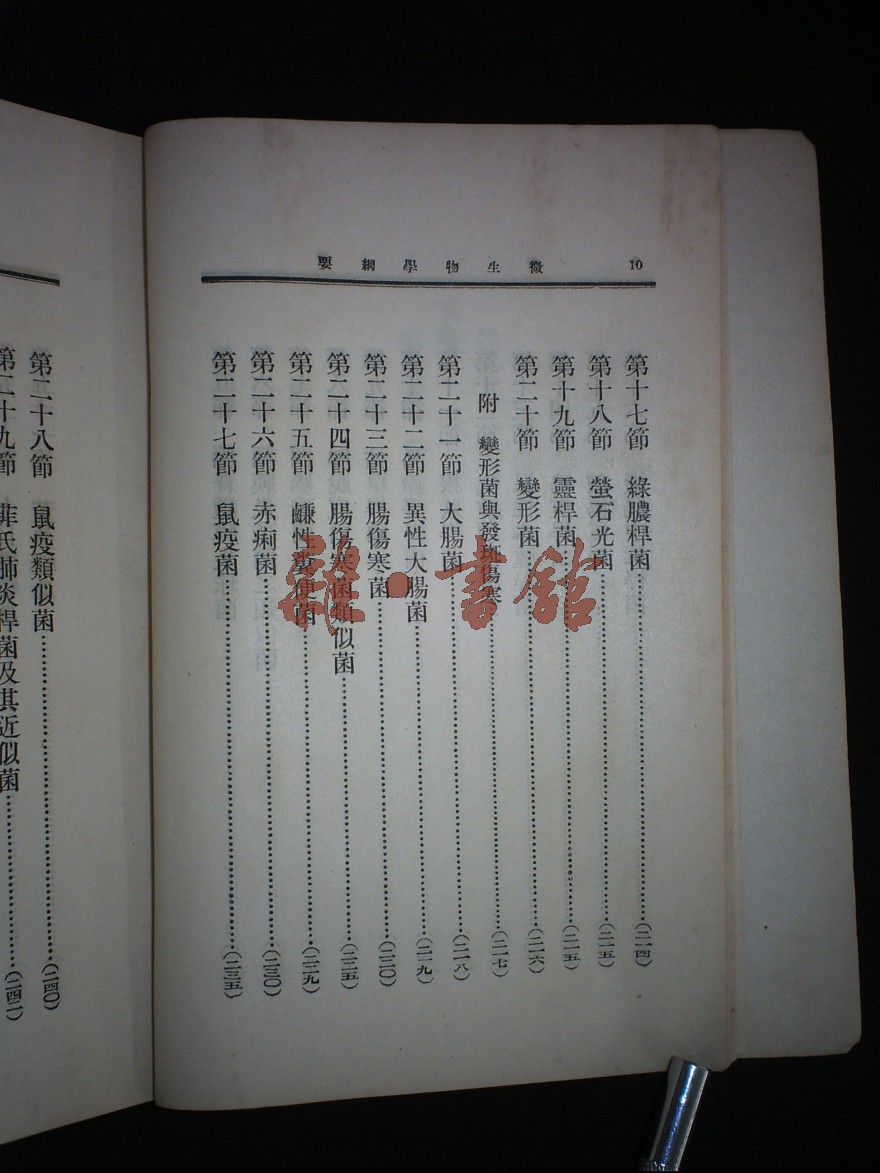 10　微生物學綱要
第十七節　綠膿桿菌……(二一四)
第十八節　螢石光菌……(二一五)
第十九節　靈桿菌……(二一五)
第二十節　變形菌……(二一六)
附　變形菌與發斑傷寒……(二一七)
第二十一節　大腸菌……(二一八)
第二十二節　異性大腸菌……(二一九)
第二十三節　腸傷寒菌……(二二〇)
第二十四節　腸傷寒菌類似菌……(二二五)
第二十五節　鹻性糞便菌……(二二九)
第二十六節　赤痢菌……(二三〇)
第二十七節　鼠疫菌……(二三五)
第二十八節　鼠疫類似菌……(二四〇)
第二十九節　氏肺炎桿菌及其近似菌……(二四二)
書館